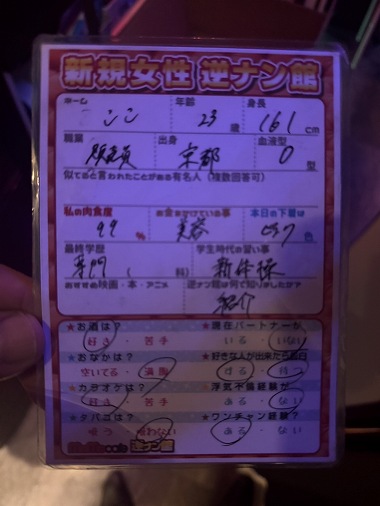 新規女性 逆ナン館
ネーム 年齢 身長
ココ 23 歳 161 cm
職業 出身 血液型
販売員 京都 O 型
似てると言われたことがある有名人(複数回答可)
私の肉食度 お金をかけている事 本日の下着は
99 % 美容 ピンク 色
最終学歴 学生時代の習い事
専門 ( 科) 新体操
おすすめ映画・本・アニメ 逆ナン館は何で知りましたか?
紹介
★お酒は? ★現在パートナーが
好き・苦手 いる・いない
★おなかは? ★好きな人が出来たら告白
空いてる・満腹 する・待つ
★カラオケは? ★浮気不倫経験が
好き・苦手 ある・ない
★タバコは? ★ワンチャン経験?
吸う・吸わない ある・ない
cafe 逆ナン館